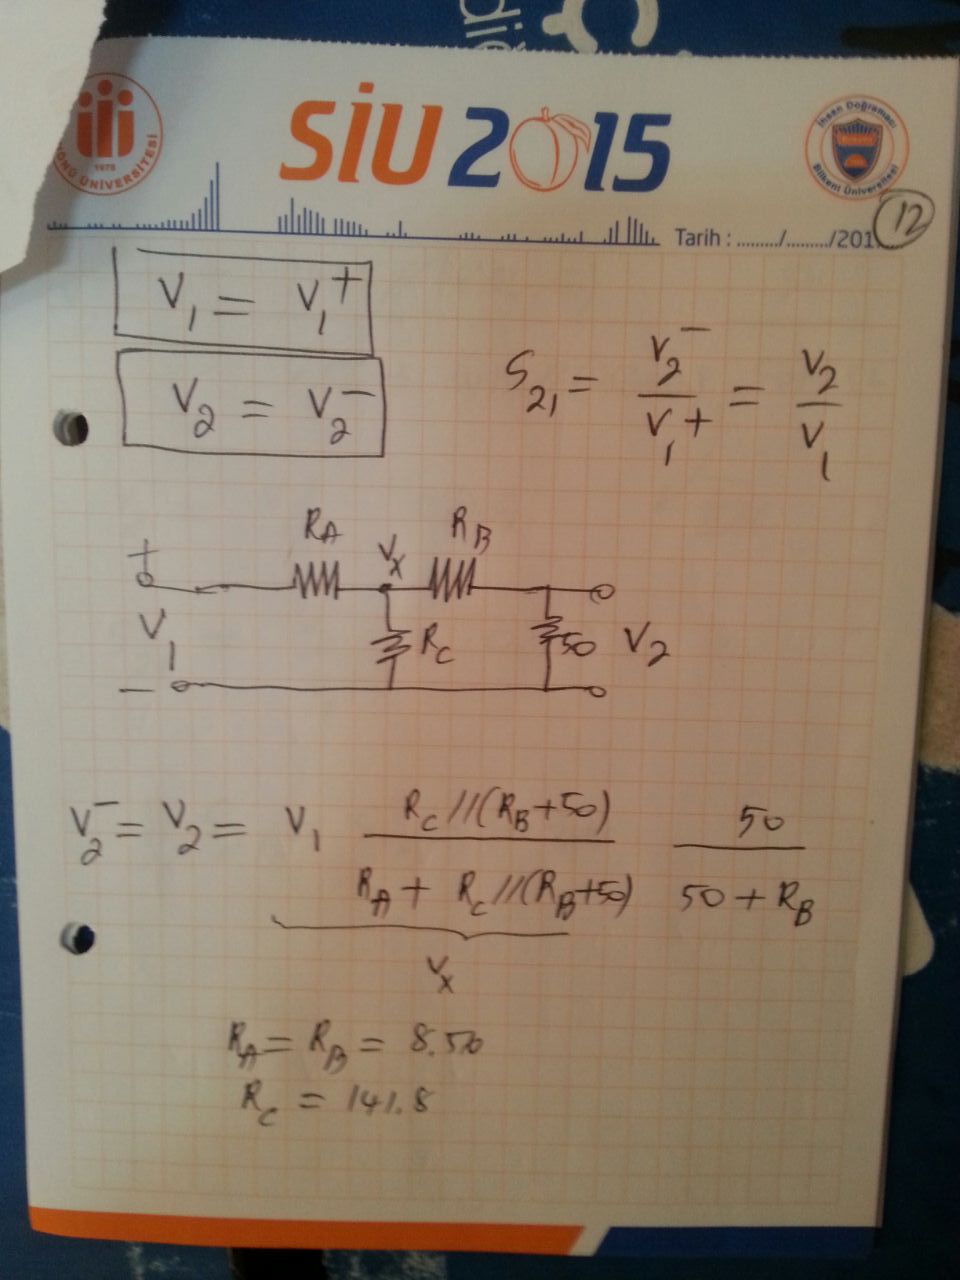 SİU 2015
1975
İNÖNÜ ÜNİVERSİTESİ
İhsan Doğramacı
Bilkent Üniversitesi
Tarih : ........./........./201
12
V₁ = V₁⁺
V₂ = V₂⁻
S₂₁ = V₂⁻/V₁⁺ = V₂/V₁
R_A V_x R_B
+
V₁ R_C 50 V₂
−
V₂⁻ = V₂ = V₁ R_C//(R_B+50) / R_A + R_C//(R_B+50) 50 / 50 + R_B
V_x
R_A = R_B = 8.56
R_C = 141.8